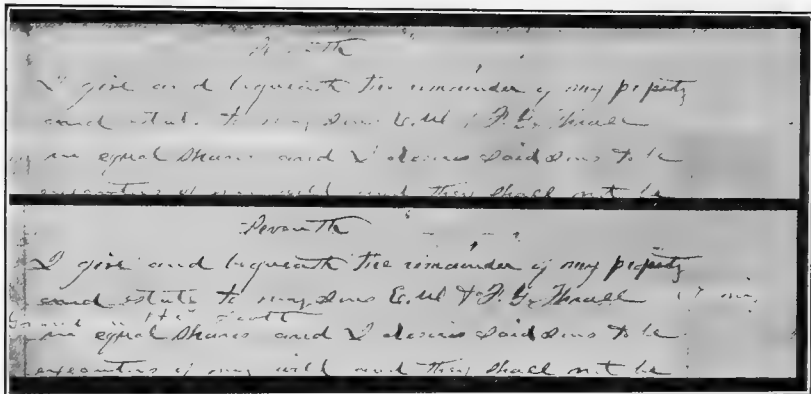 Seventh
I give and bequeath the remainder of my property
and estate to my sons E.W & F.G. Thrall
in equal shares and I desire said sons to be
executors of my will and they shall not be
Seventh
I give and bequeath the remainder of my property
and estate to my sons E.W & F.G. Thrall
in equal shares and I desire said sons to be
executors of my will and they shall not be